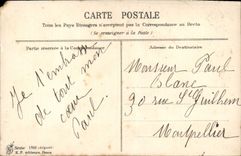 CARTE POSTALE
Tous les Pays Etrangers n'acceptent pas la Correspondance au Recto
(Se renseigner à la Poste)
Partie réservée à la Correspondance
Adresse du Destinataire
Je t'embrasse
de tout mon
cœur
Paul
Monsieur Paul
Blanc
30 rue St Guilhem
Montpellier